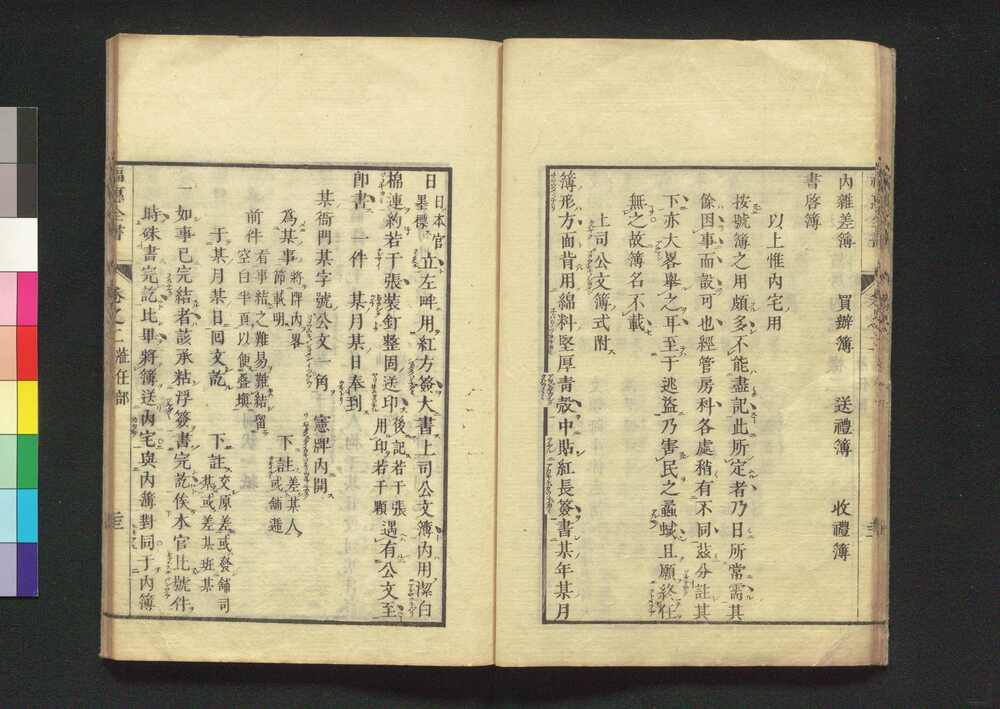 內雜差簿　買辦簿　送禮簿　收禮簿
書啓簿
以上惟內宅用
按號簿之用頗多不能盡記此所定者乃日所常需其
餘因事而設可也經管房科各處稍有不同茲分註其
下亦大畧舉之耳至于逃盜乃害民之蟊蜮且願終任
無之故簿名不載
上司公文簿式附
簿形方面背用綿料堅厚青殼中貼紅長簽書某年某月
日日本官墨標立左畔用紅方簽大書上司公文簿內用潔白
棉連約若干張裝釘整固送印後記若干張用印若干顆遇有公文至
卽書一件　某月某日奉到
某衙門某字號公文一角　憲牌內開
為某事將牌內畧節載明　下註差某人或舖遞
前件看事精之難易難結留空白半頁以便登塡
于某月某日囘文訖　下註交原差或發舖司某或差某班某
一如事已完結者該承粘浮簽書完訖俟本官比號件
時硃書完訖比畢將簿送內宅與內簿對同于內簿
福惠全書　卷之二蒞任部　三